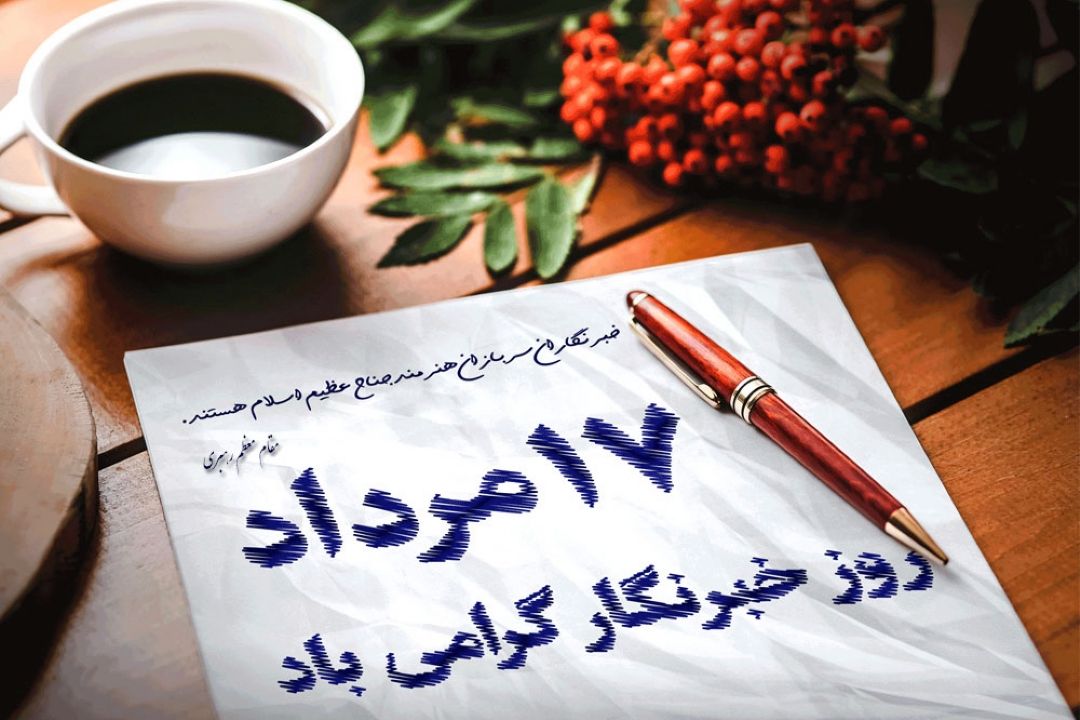 خبرنگاران سربازان هنرمند جناح عظیم اسلام هستند.
مقام معظم رهبری
۱۷ مرداد
روز خبرنگار گرامی باد